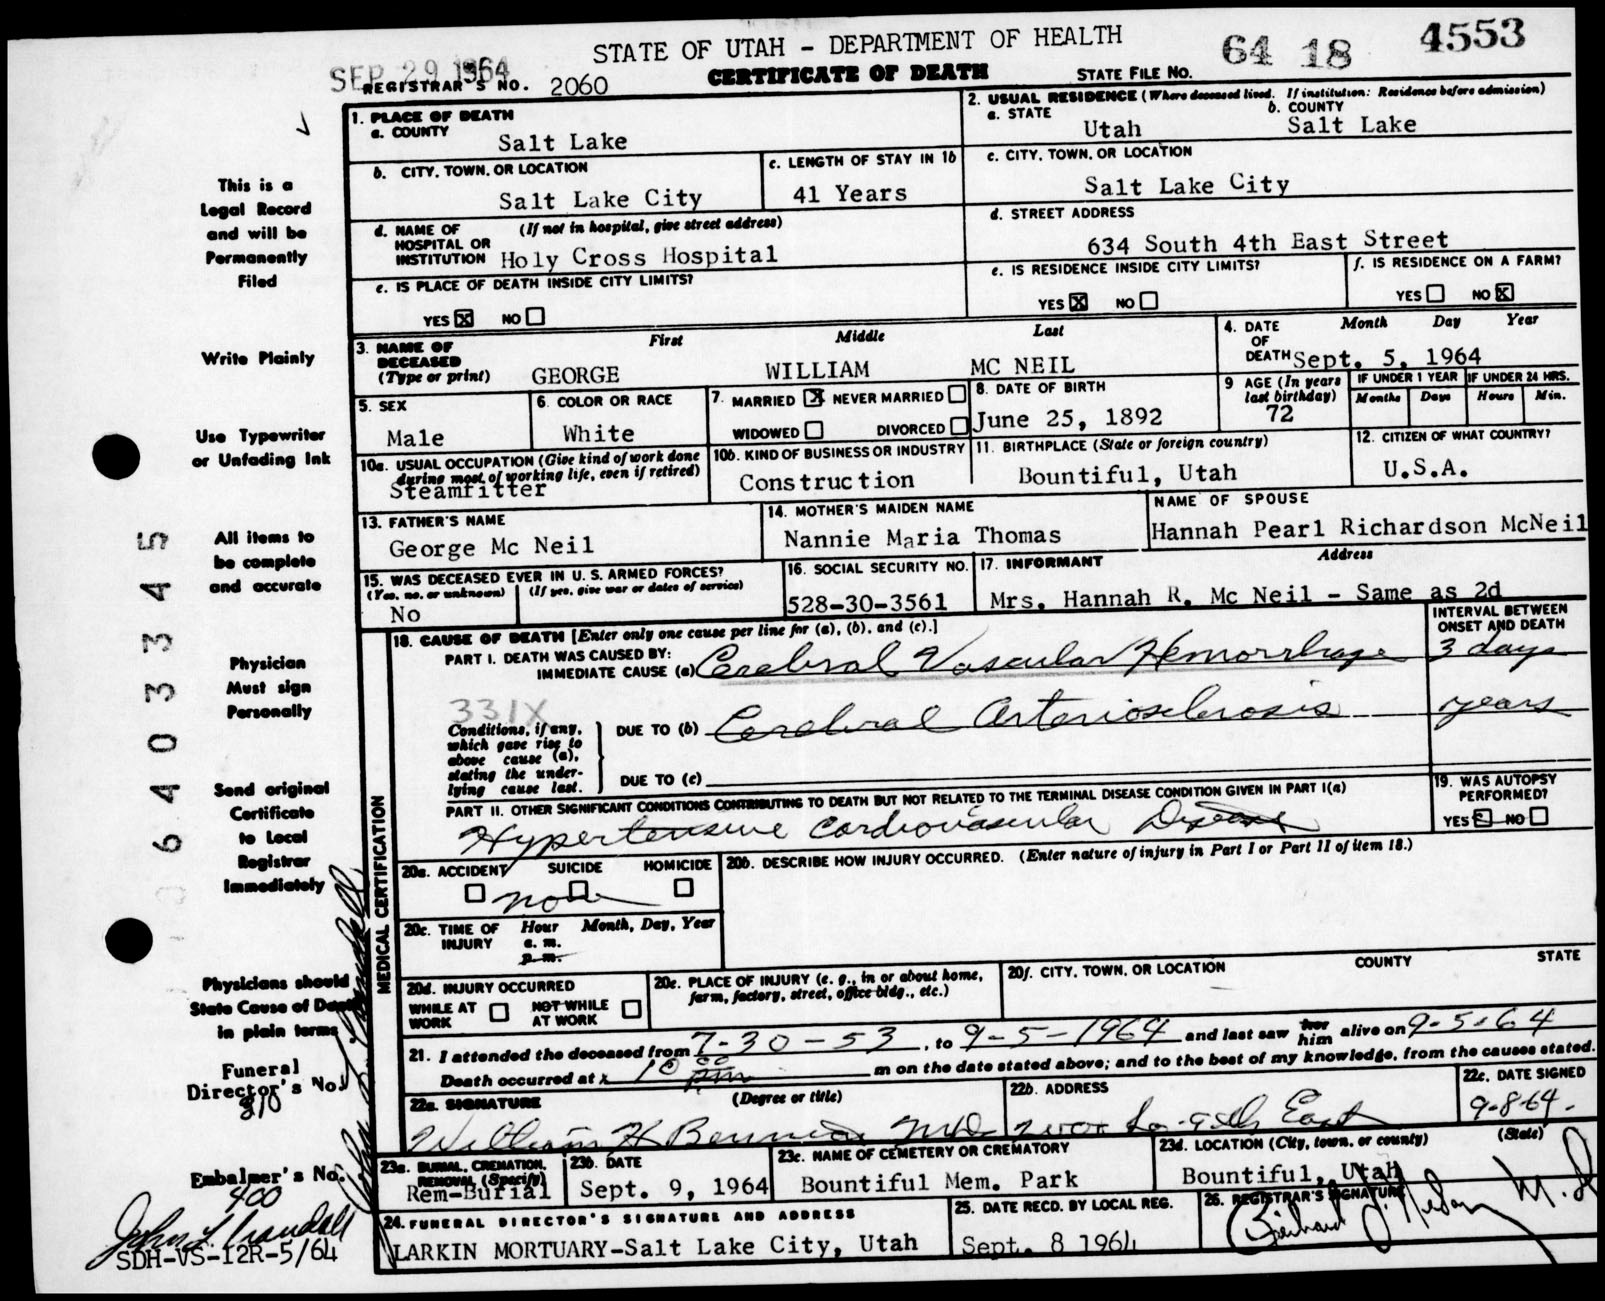 STATE OF UTAH - DEPARTMENT OF HEALTH
CERTIFICATE OF DEATH
SEP 29 1964
REGISTRAR'S NO. 2060
STATE FILE NO. 64 18 4553
1. PLACE OF DEATH
a. COUNTY
Salt Lake
2. USUAL RESIDENCE (Where deceased lived. If institution: Residence before admission)
a. STATE
Utah
b. COUNTY
Salt Lake
b. CITY, TOWN, OR LOCATION
Salt Lake City
c. LENGTH OF STAY IN 1b
41 Years
c. CITY, TOWN, OR LOCATION
Salt Lake City
d. NAME OF HOSPITAL OR INSTITUTION (If not in hospital, give street address)
Holy Cross Hospital
d. STREET ADDRESS
634 South 4th East Street
e. IS PLACE OF DEATH INSIDE CITY LIMITS?
YES X NO
e. IS RESIDENCE INSIDE CITY LIMITS?
YES X NO
f. IS RESIDENCE ON A FARM?
YES NO X
3. NAME OF DECEASED (Type or print)
First Middle Last
GEORGE WILLIAM MC NEIL
4. DATE OF DEATH Month Day Year
Sept. 5, 1964
5. SEX
Male
6. COLOR OR RACE
White
7. MARRIED X NEVER MARRIED
WIDOWED DIVORCED
8. DATE OF BIRTH
June 25, 1892
9 AGE (In years last birthday)
72
IF UNDER 1 YEAR
Months Days
IF UNDER 24 HRS.
Hours Min.
10a. USUAL OCCUPATION (Give kind of work done during most of working life, even if retired)
Steamfitter
10b. KIND OF BUSINESS OR INDUSTRY
Construction
11. BIRTHPLACE (State or foreign country)
Bountiful, Utah
12. CITIZEN OF WHAT COUNTRY?
U.S.A.
13. FATHER'S NAME
George Mc Neil
14. MOTHER'S MAIDEN NAME
Nannie Maria Thomas
NAME OF SPOUSE
Hannah Pearl Richardson McNeil
15. WAS DECEASED EVER IN U. S. ARMED FORCES?
(Yes, no, or unknown) (If yes, give war or dates of service)
No
16. SOCIAL SECURITY NO.
528-30-3561
17. INFORMANT Address
Mrs. Hannah R. Mc Neil - Same as 2d
MEDICAL CERTIFICATION
18. CAUSE OF DEATH [Enter only one cause per line for (a), (b), and (c).]
INTERVAL BETWEEN ONSET AND DEATH
PART I. DEATH WAS CAUSED BY:
IMMEDIATE CAUSE (a) Cerebral Vascular Hemorrhage 3 days
331X
Conditions, if any, which gave rise to above cause (a), stating the underlying cause last.
DUE TO (b) Cerebral Arteriosclerosis years
DUE TO (c)
PART II. OTHER SIGNIFICANT CONDITIONS CONTRIBUTING TO DEATH BUT NOT RELATED TO THE TERMINAL DISEASE CONDITION GIVEN IN PART I(a)
Hypertensive Cardiovascular Disease
19. WAS AUTOPSY PERFORMED?
YES NO
20a. ACCIDENT SUICIDE HOMICIDE
none
20b. DESCRIBE HOW INJURY OCCURRED. (Enter nature of injury in Part I or Part II of item 18.)
20c. TIME OF INJURY Hour Month, Day, Year
a. m.
p. m.
20d. INJURY OCCURRED
WHILE AT WORK NOT WHILE AT WORK
20e. PLACE OF INJURY (e. g., in or about home, farm, factory, street, office bldg., etc.)
20f. CITY, TOWN, OR LOCATION COUNTY STATE
21. I attended the deceased from 7-30-53, to 9-5-1964 and last saw her him alive on 9-5-64
Death occurred at 10 00 pm m on the date stated above; and to the best of my knowledge, from the causes stated.
22a. SIGNATURE (Degree or title)
William H M.D.
22b. ADDRESS
East
22c. DATE SIGNED
9-8-64.
23a. BURIAL, CREMATION, REMOVAL (Specify)
Rem-Burial
23b. DATE
Sept. 9, 1964
23c. NAME OF CEMETERY OR CREMATORY
Bountiful Mem. Park
23d. LOCATION (City, town, or county) (State)
Bountiful, Utah
24. FUNERAL DIRECTOR'S SIGNATURE AND ADDRESS
LARKIN MORTUARY-Salt Lake City, Utah
25. DATE RECD. BY LOCAL REG.
Sept. 8 1964
26. REGISTRAR'S SIGNATURE
M.D.
This is a
Legal Record
and will be
Permanently
Filed
Write Plainly
Use Typewriter
or Unfading Ink
All items to
be complete
and accurate
Physician
Must sign
Personally
Send original
Certificate
to Local
Registrar
Immediately
Physicians should
State Cause of Death
in plain terms
Funeral
Director's No.
810
Embalmer's No.
400
SDH-VS-12R-5/64
640 3345